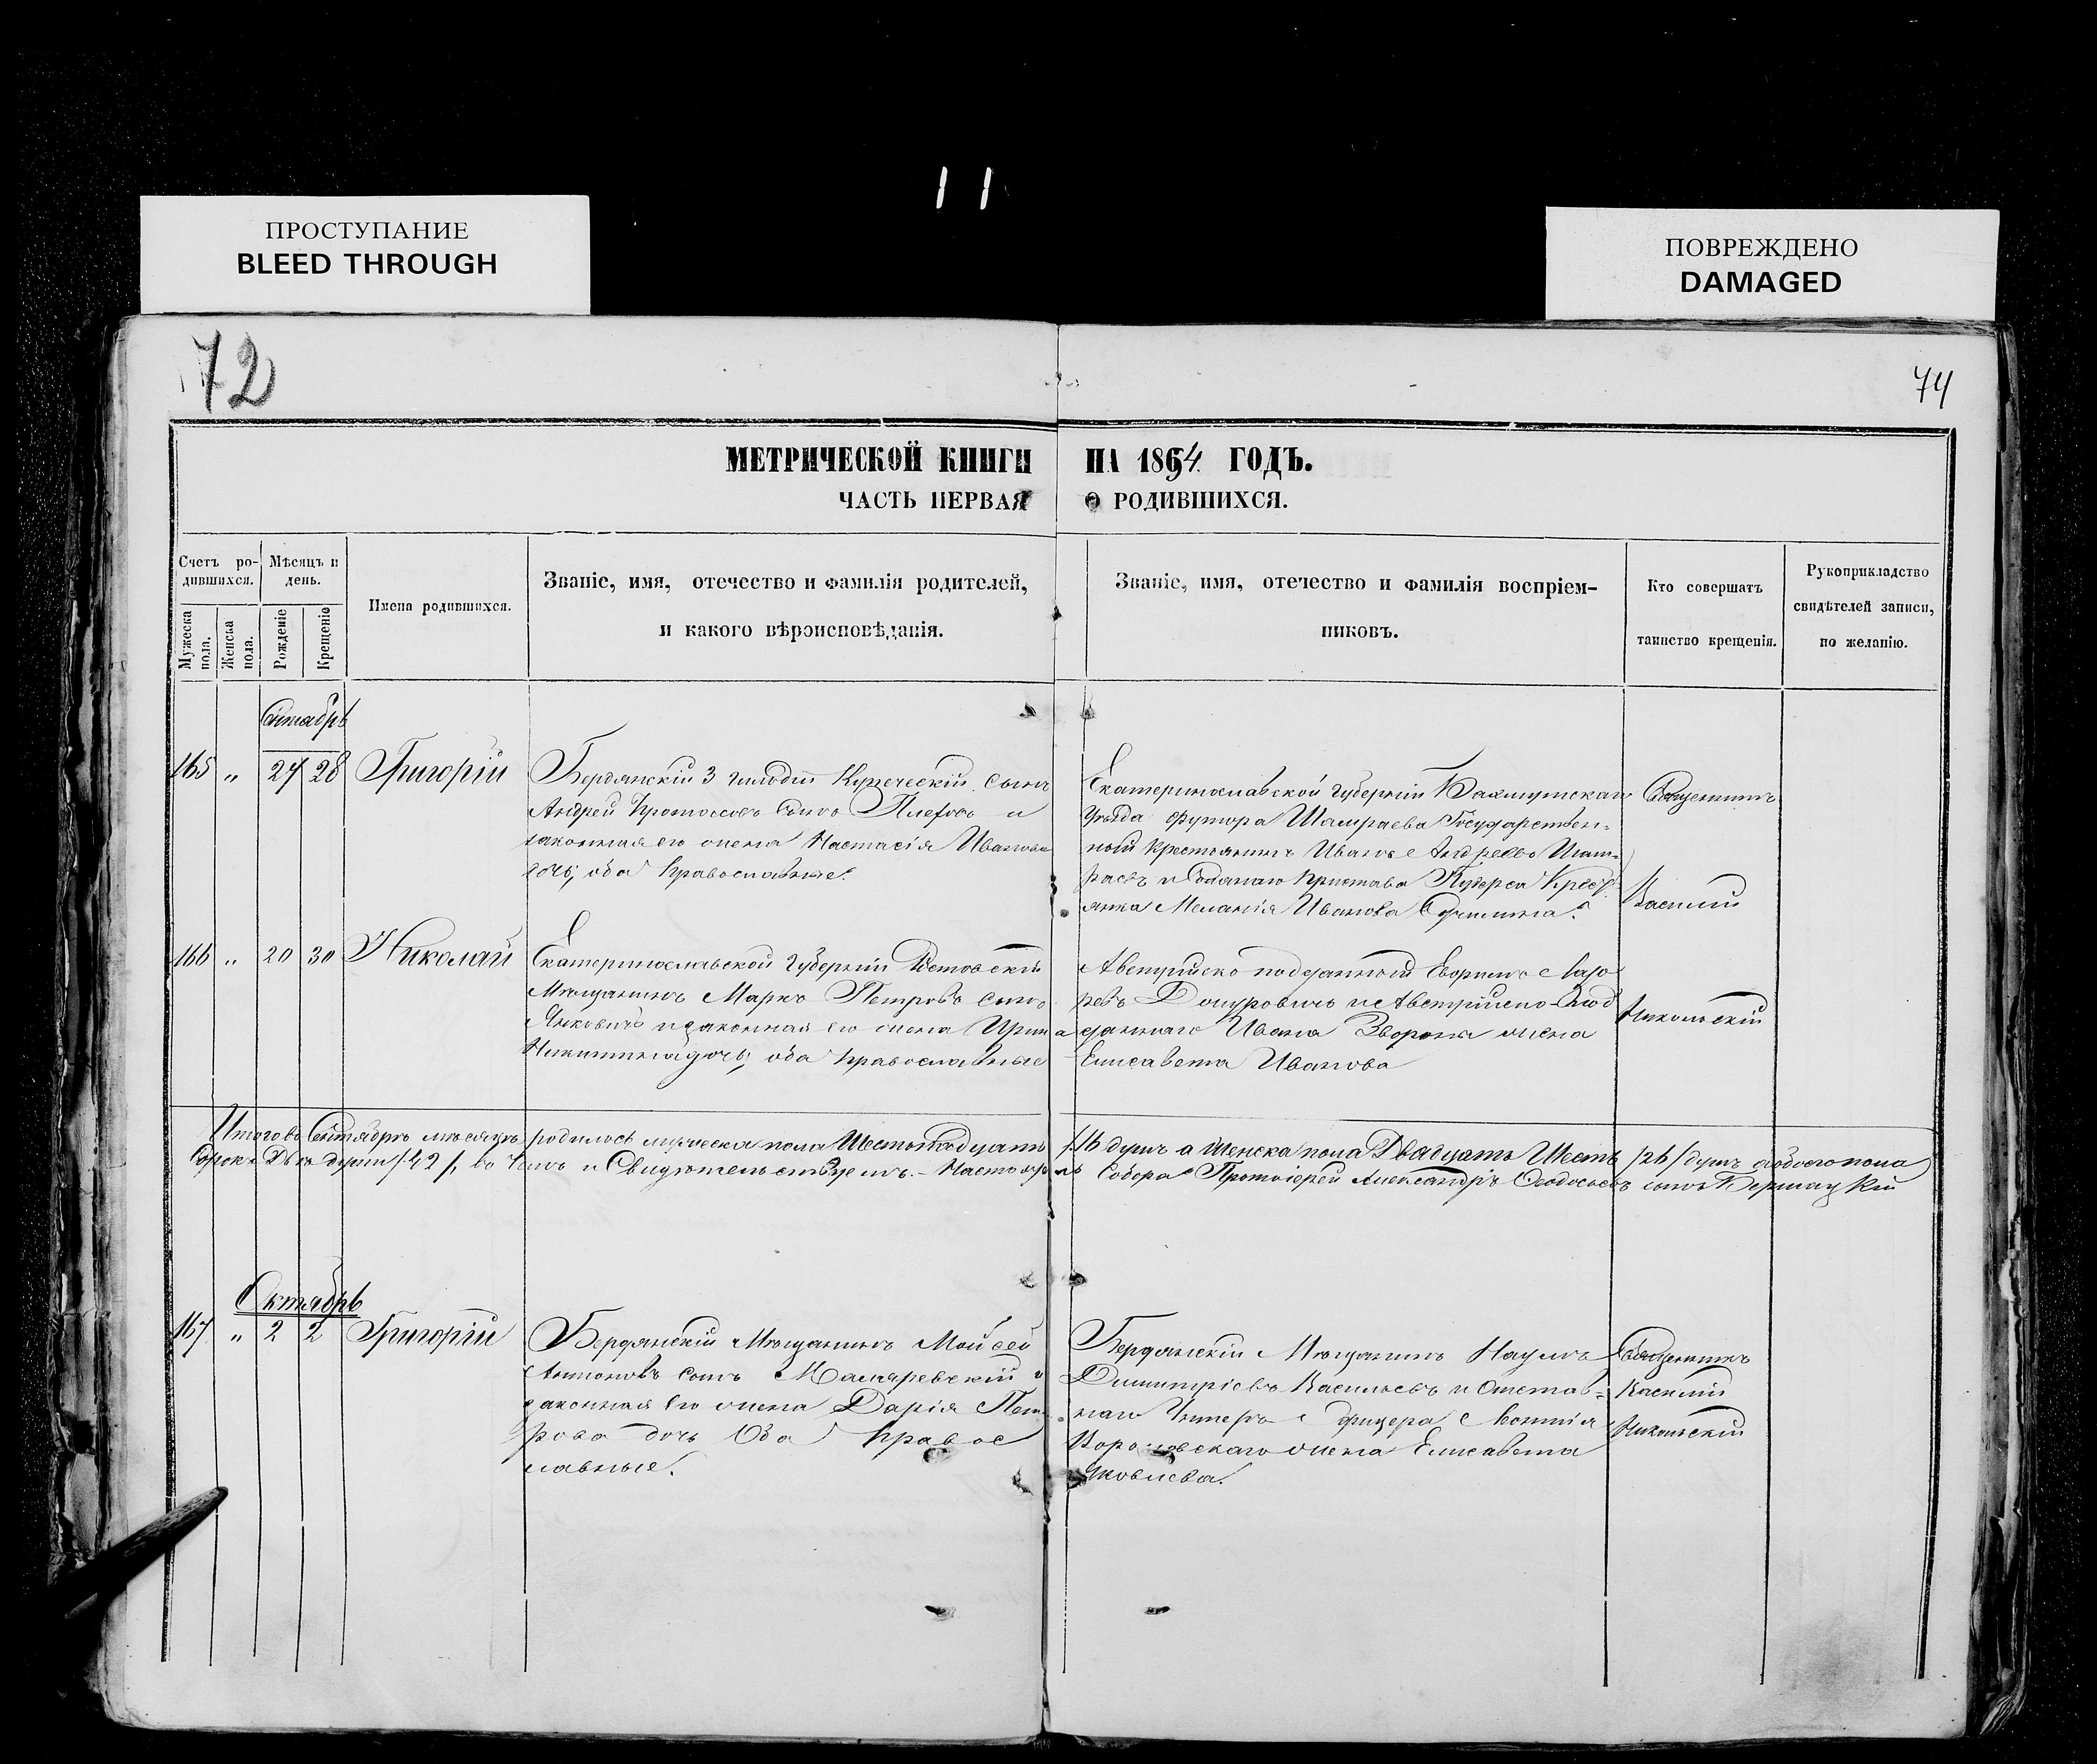 ПРОСТУПАНИЕ
BLEED THROUGH
11
ПОВРЕЖДЕНО
DAMAGED
72
74
МЕТРИЧЕСКОЙ КНИГИ НА 1854 ГОДЪ.
ЧАСТЬ ПЕРВАЯ О РОДИВШИХСЯ.
Счетъ ро-
дившихся.
Мужеска
пола.
Женска
пола.
Мѣсяцъ и
день.
Рожденіе
Крещеніе
Имена родившихся.
Званіе, имя, отечество и фамилія родителей,
и какого вѣроисповѣданія.
Званіе, имя, отечество и фамилія воспріем-
никовъ.
Кто совершатъ
таинство крещенія.
Рукоприкладство
свидѣтелей записи,
по желанію.
Сентябрь
165 „ 27 28 Григорій
Бердянскій 3 гильдіи Купеческій сынъ
Андрей сынъ и
законная его жена Настасія Иванова
дочь, оба Православные.
Екатеринославской Губерніи Бахмутскаго
Уѣзда Хутора Шамраева Государствен=
ный Крестьянинъ Иванъ Андреевъ Шам=
раевъ и Пристава Крест
янка Меланія Иванова
Священникъ
Василій
166 „ 20 30 Николай
Екатеринославской Губерніи Ростовскій
Мѣщанинъ Марко Петровъ сынъ
Янковичъ и законная его жена Ирина
Никитина дочь, оба Православные
Австрійско подданный Лазо
ревъ и Австрійско-Под
даннаго Ивана жена
Елисавета Иванова
Никольскій
Итого въ Сентябрѣ мѣсяцѣ родилось мужеска пола Шестьнадцать /16/ душъ а Женска пола Двадцать Шесть /26/ душъ а обоего пола
Сорокъ Двѣ души /42/, въ чемъ и Свидѣтельствуемъ. Собора Протоіерей Александръ Ѳеодосіевъ сынъ
Октябрь
167 „ 2 2 Григорій
Бердянскій Мѣщанинъ Мойсей
Антоновъ сынъ и
законная его жена Дарія Пет
рова дочь Оба Правос
лавные.
Бердянскій Мѣщанинъ Наумъ
Димитріевъ Васильевъ и Отстав=
наго Унтеръ Офицера
жена Елисавета
Яковлева.
Священникъ
Василій
Никольскій